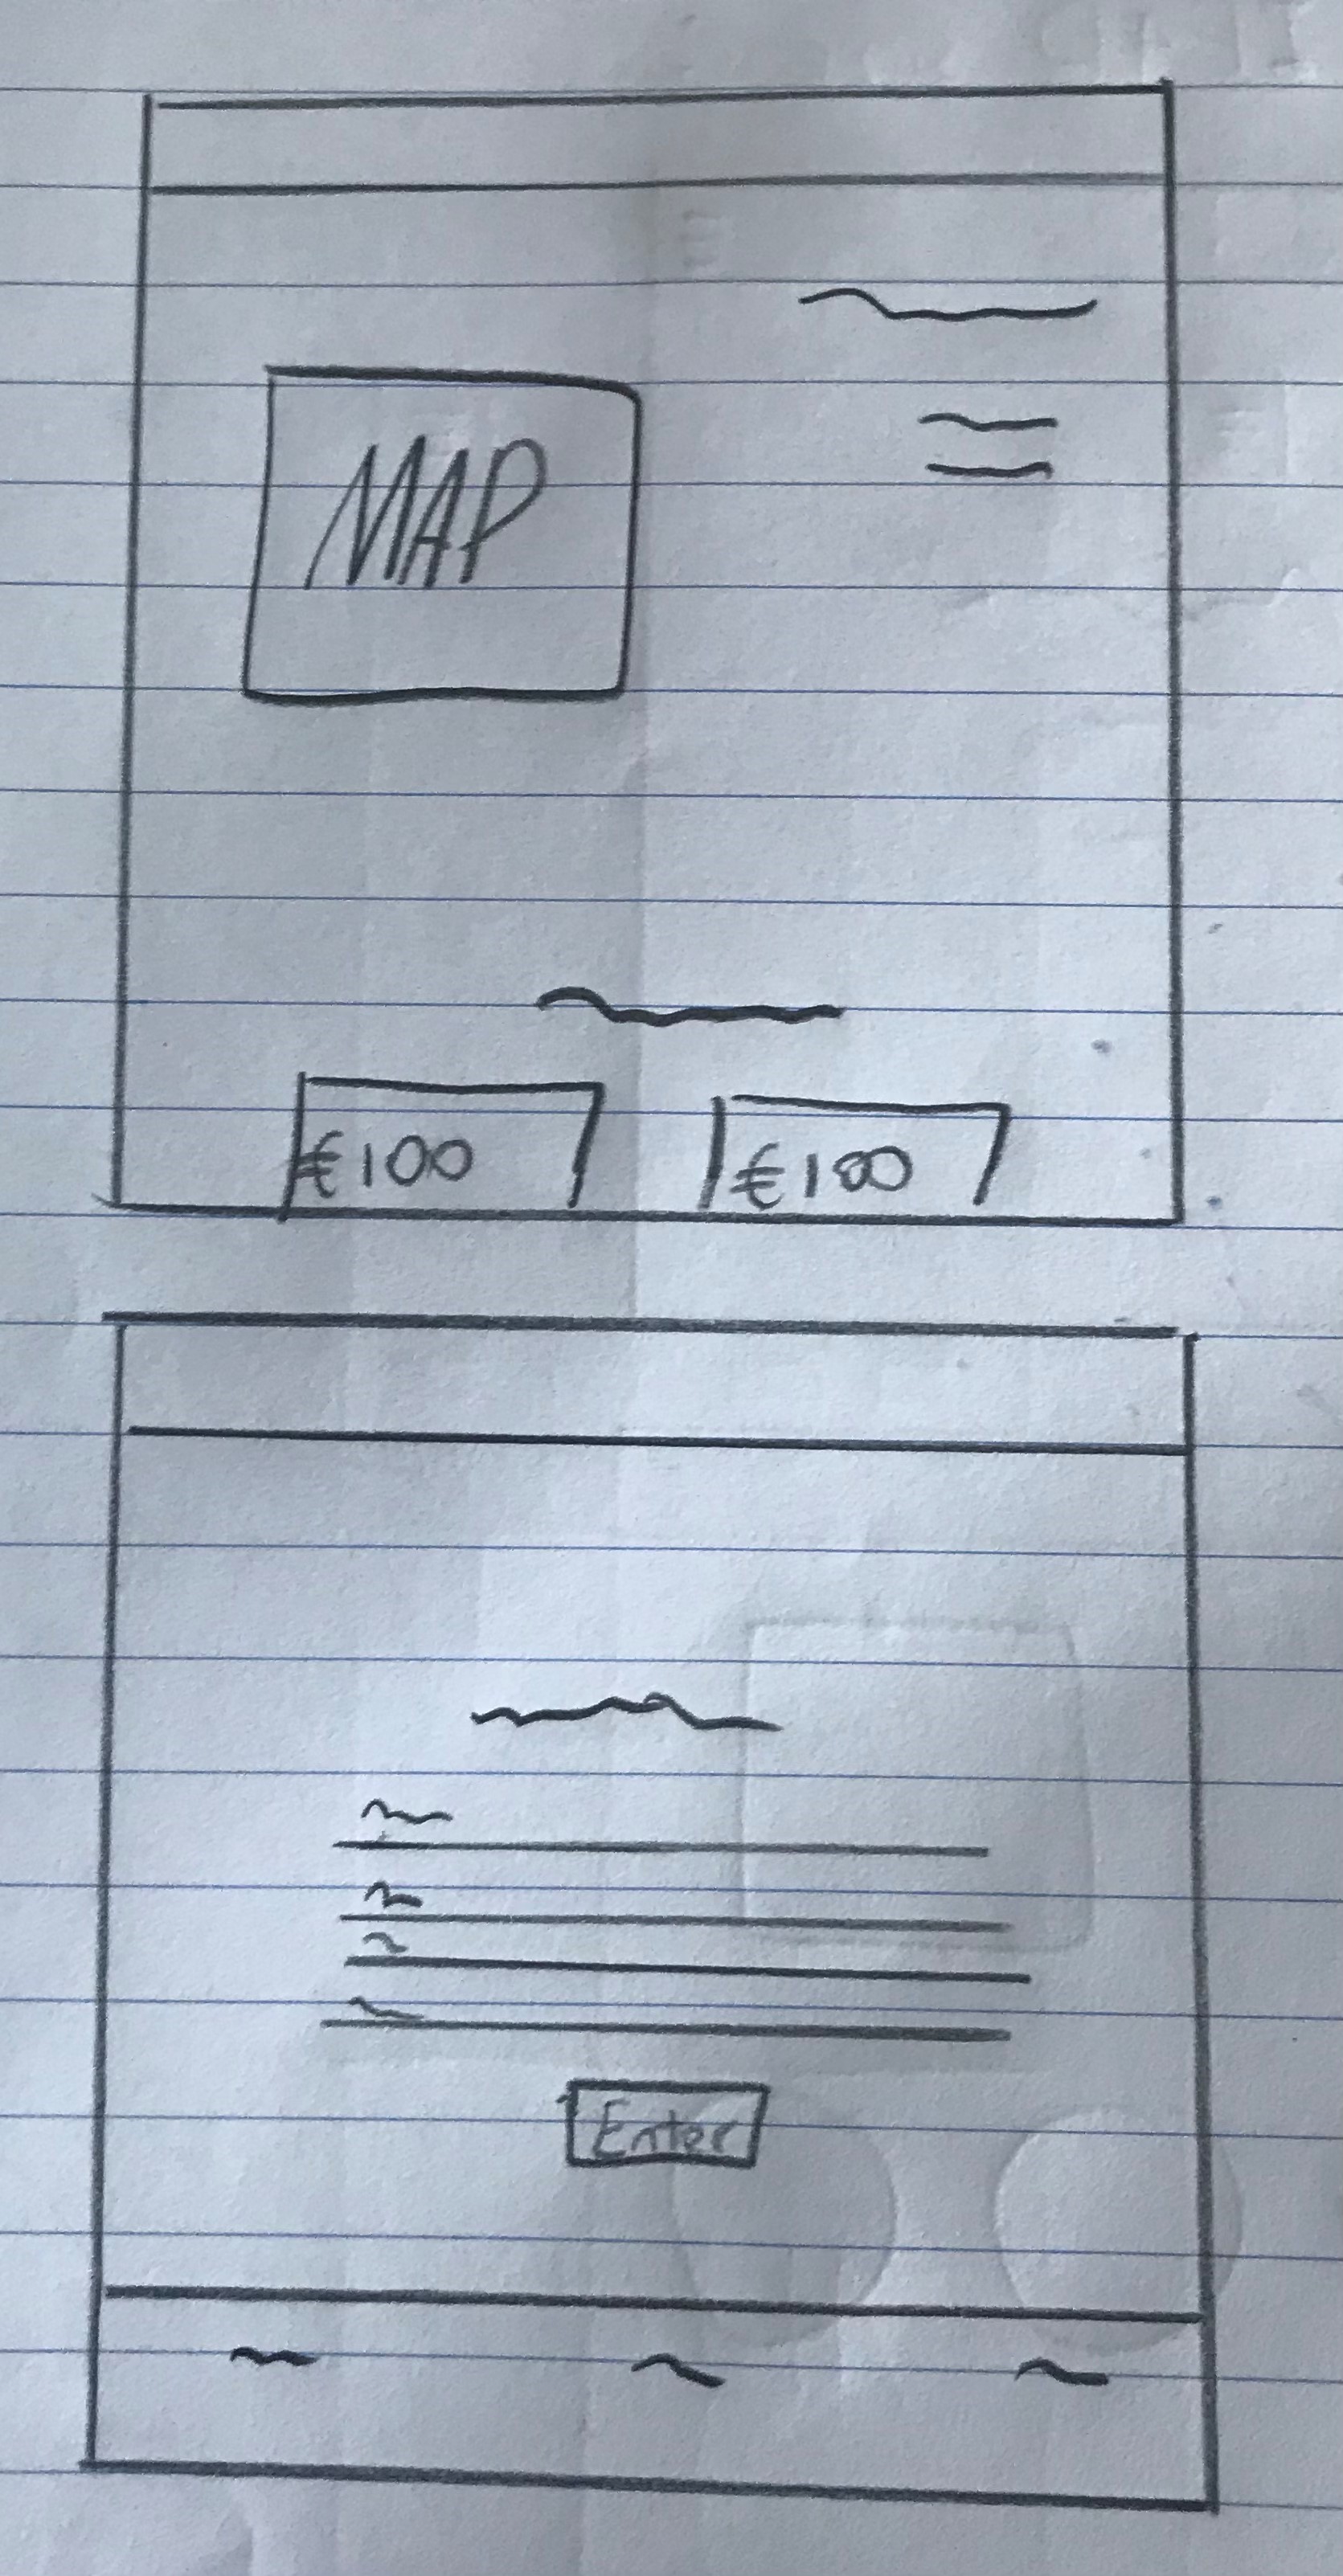 MAP
€100 €100
Enter